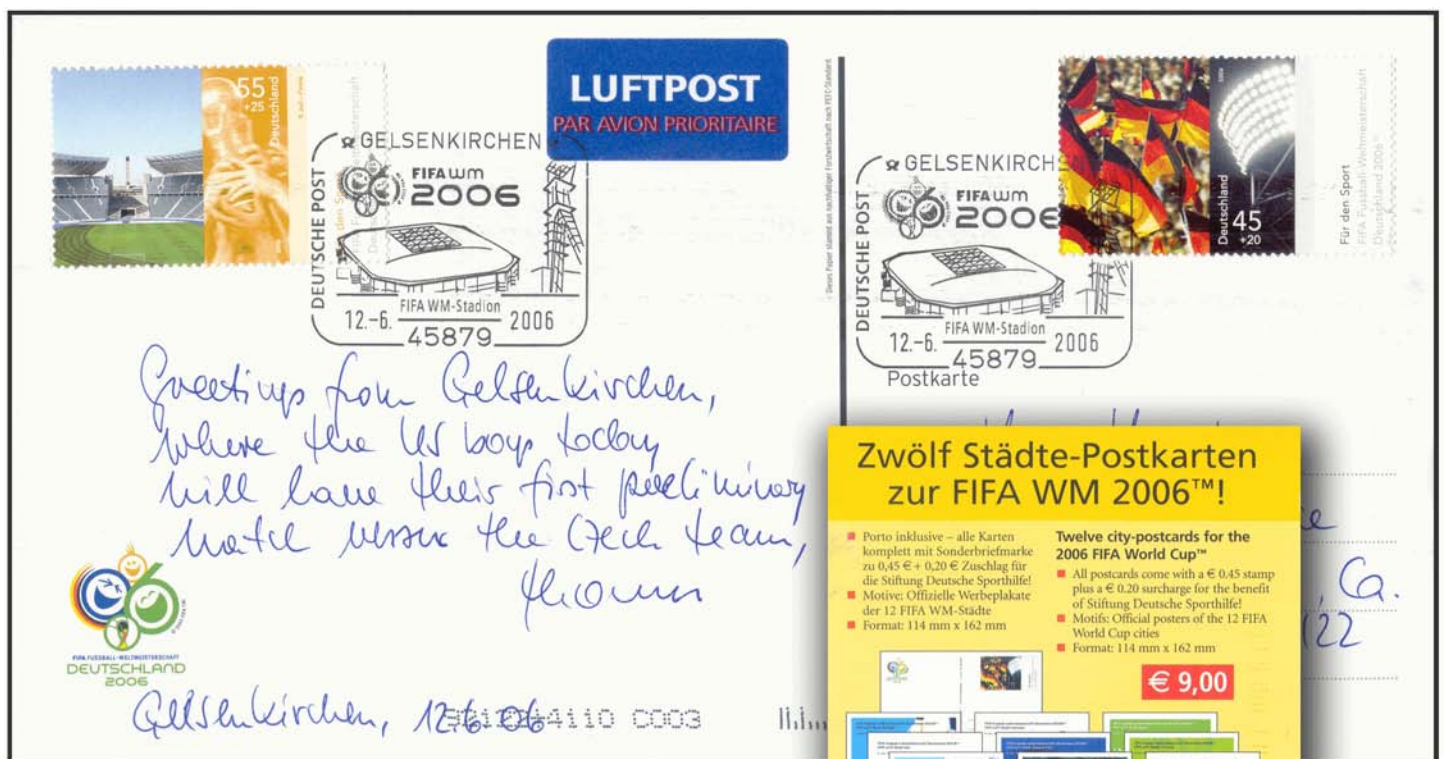 55
+25
Deutschland
LUFTPOST
PAR AVION PRIORITAIRE
DEUTSCHE POST
GELSENKIRCHEN
FIFA WM
2006
FIFA WM-Stadion
12.-6. 2006
45879
Dieses Papier stammt aus nachhaltiger Forstwirtschaft nach PEFC-Standard
DEUTSCHE POST
GELSENKIRCHE
FIFA WM
2006
FIFA WM-Stadion
12.-6. 2006
45879
Deutschland
45
+20
Für den Sport
FIFA Fussball-Weltmeisterschaft
Deutschland 2006™
Postkarte
Greetings from Gelsenkirchen,
where the US boys today
will have their first preliminary
match versus the Czech team,
FIFA FUSSBALL-WELTMEISTERSCHAFT
DEUTSCHLAND
2006
Gelsenkirchen, 12.6.06
4110 C003
, Ca.
122
Zwölf Städte-Postkarten
zur FIFA WM 2006™!
Porto inklusive – alle Karten
komplett mit Sonderbriefmarke
zu 0,45 € + 0,20 € Zuschlag für
die Stiftung Deutsche Sporthilfe!
Motive: Offizielle Werbeplakate
der 12 FIFA WM-Städte
Format: 114 mm x 162 mm
Twelve city-postcards for the
2006 FIFA World Cup™
All postcards come with a € 0.45 stamp
plus a € 0.20 surcharge for the benefit
of Stiftung Deutsche Sporthilfe!
Motifs: Official posters of the 12 FIFA
World Cup cities
Format: 114 mm x 162 mm
€ 9,00